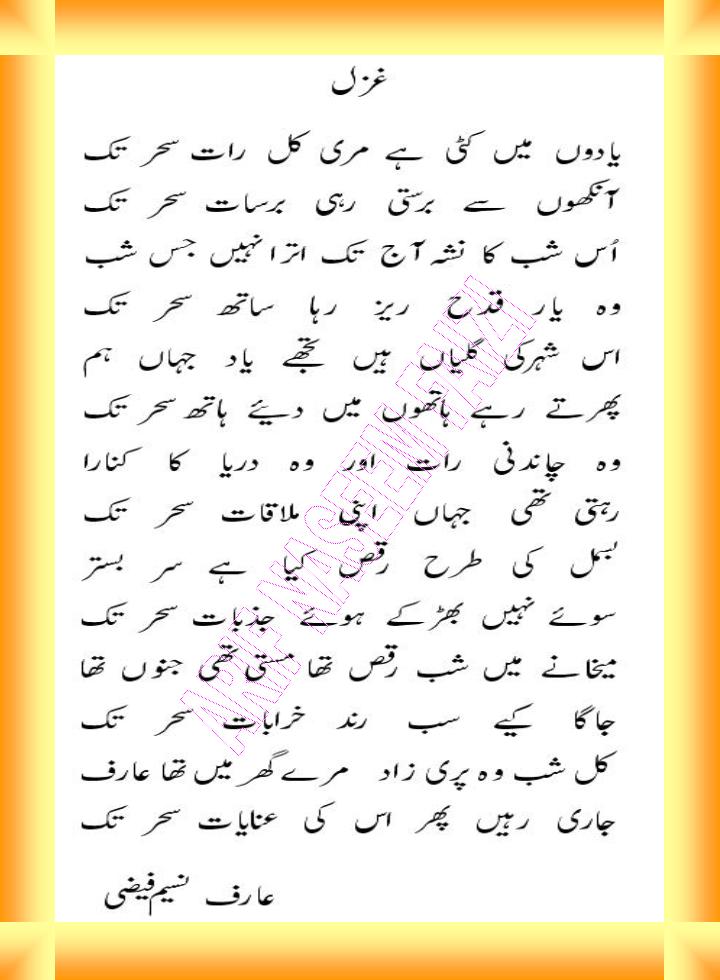 غزل
یادوں میں کٹی ہے مری کل رات سحر تک
آنکھوں سے برستی رہی برسات سحر تک
اُس شب کا نشہ آج تک اترا نہیں جس شب
وہ یار قدح ریز رہا ساتھ سحر تک
اس شہر کی گلیاں ہیں تجھے یاد جہاں ہم
پھرتے رہے ہاتھوں میں دیئے ہاتھ سحر تک
وہ چاندنی رات اور وہ دریا کا کنارا
رہتی تھی جہاں اپنی ملاقات سحر تک
بسمل کی طرح رقص کیا ہے سر بستر
سوئے نہیں بھڑکے ہوئے جذبات سحر تک
میخانے میں شب رقص تھا مستی تھی جنوں تھا
جاگا کیے سب رند خرابات سحر تک
کل شب وہ پری زاد مرے گھر میں تھا عارف
جاری رہیں پھر اس کی عنایات سحر تک
عارف نسیم فیضی
ARIF NASEEM FAIZI